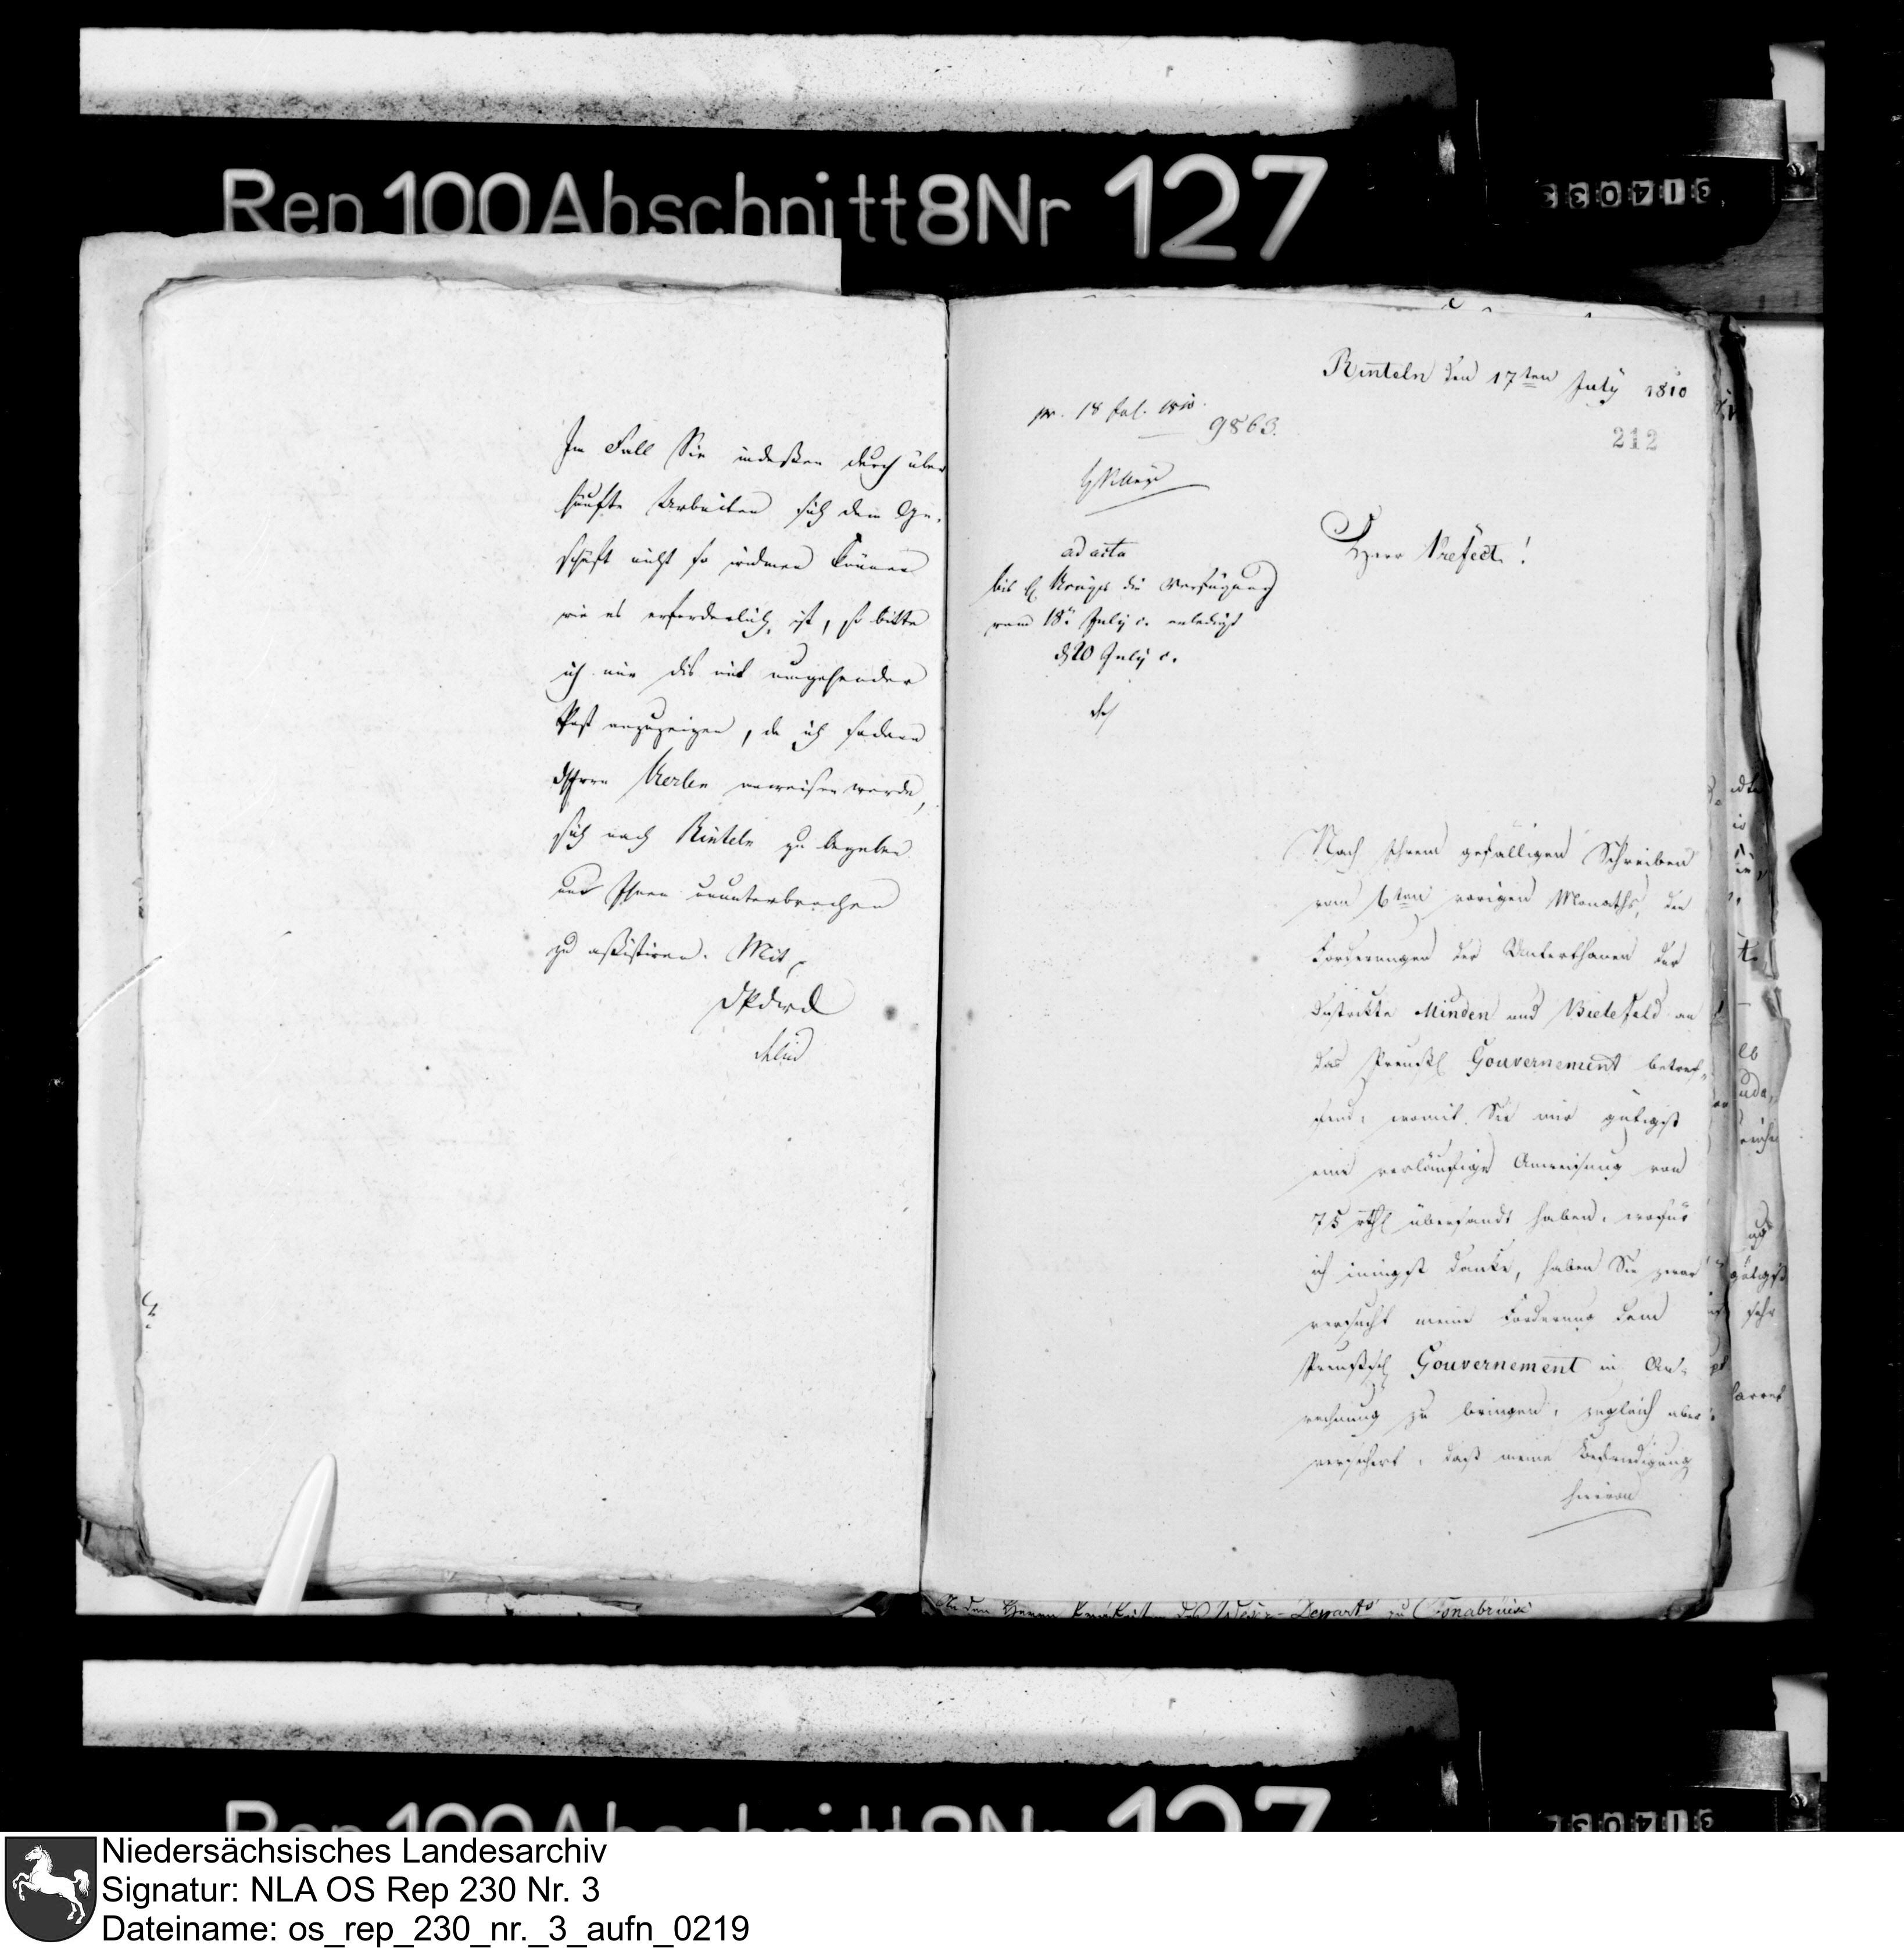 Rep 100 Abschnitt 8 Nr 127
Im Fall Sie indeßen durch über
häufte Arbeiten sich dem Ge-
schäft nicht so widmen können
wie es erforderlich ist, so bitte
ich mir dis mit umgehender
Post anzuzeigen, da ich sodann
Herrn Merlen anweisen werde,
sich nach Rinteln zu begeben
und Ihnen ununterbrochen
zu assistiren. Mit
Rinteln den 17ten July 1810
pr. 18 Jul. 1810.
9863.
212
ad acta
bis die Verfügung
vom 18t July c. erledigt
d 20 July c.
Herr Präfect!
Nach Ihrem gefälligen Schreiben
vom 6ten vorigen Monaths, die
Forderungen der Unterthanen der
Districte Minden und Bielefeld an
das Preuß Gouvernement betref-
fend, womit Sie mir gütigst
eine vorläufige Anweisung von
75 rthl übersandt haben, wofür
ich innigst danke, haben Sie zwar
versucht meine Forderung dem
Preußsch Gouvernement in An-
rechnung zu bringen, zugleich aber
versichert, daß meine Befriedigung
hiervon
An den Herrn Präfecten des Weser-Departs zu Osnabrück
Niedersächsisches Landesarchiv
Signatur: NLA OS Rep 230 Nr. 3
Dateiname: os_rep_230_nr._3_aufn_0219